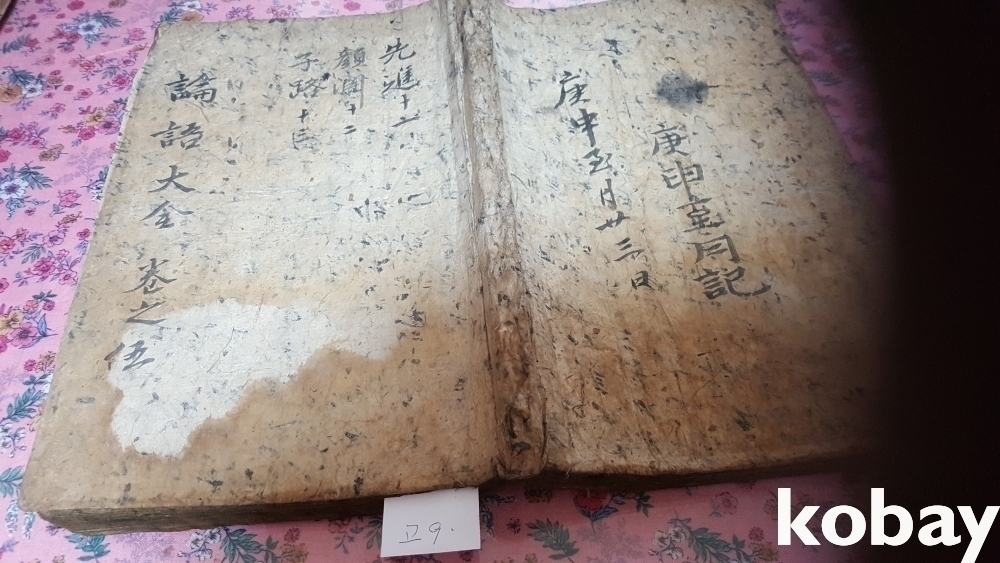 庚申至月記
庚申至月廿三日
先進十一
顔淵十二
子路十三
論語大全 卷之伍
고9.
kobay